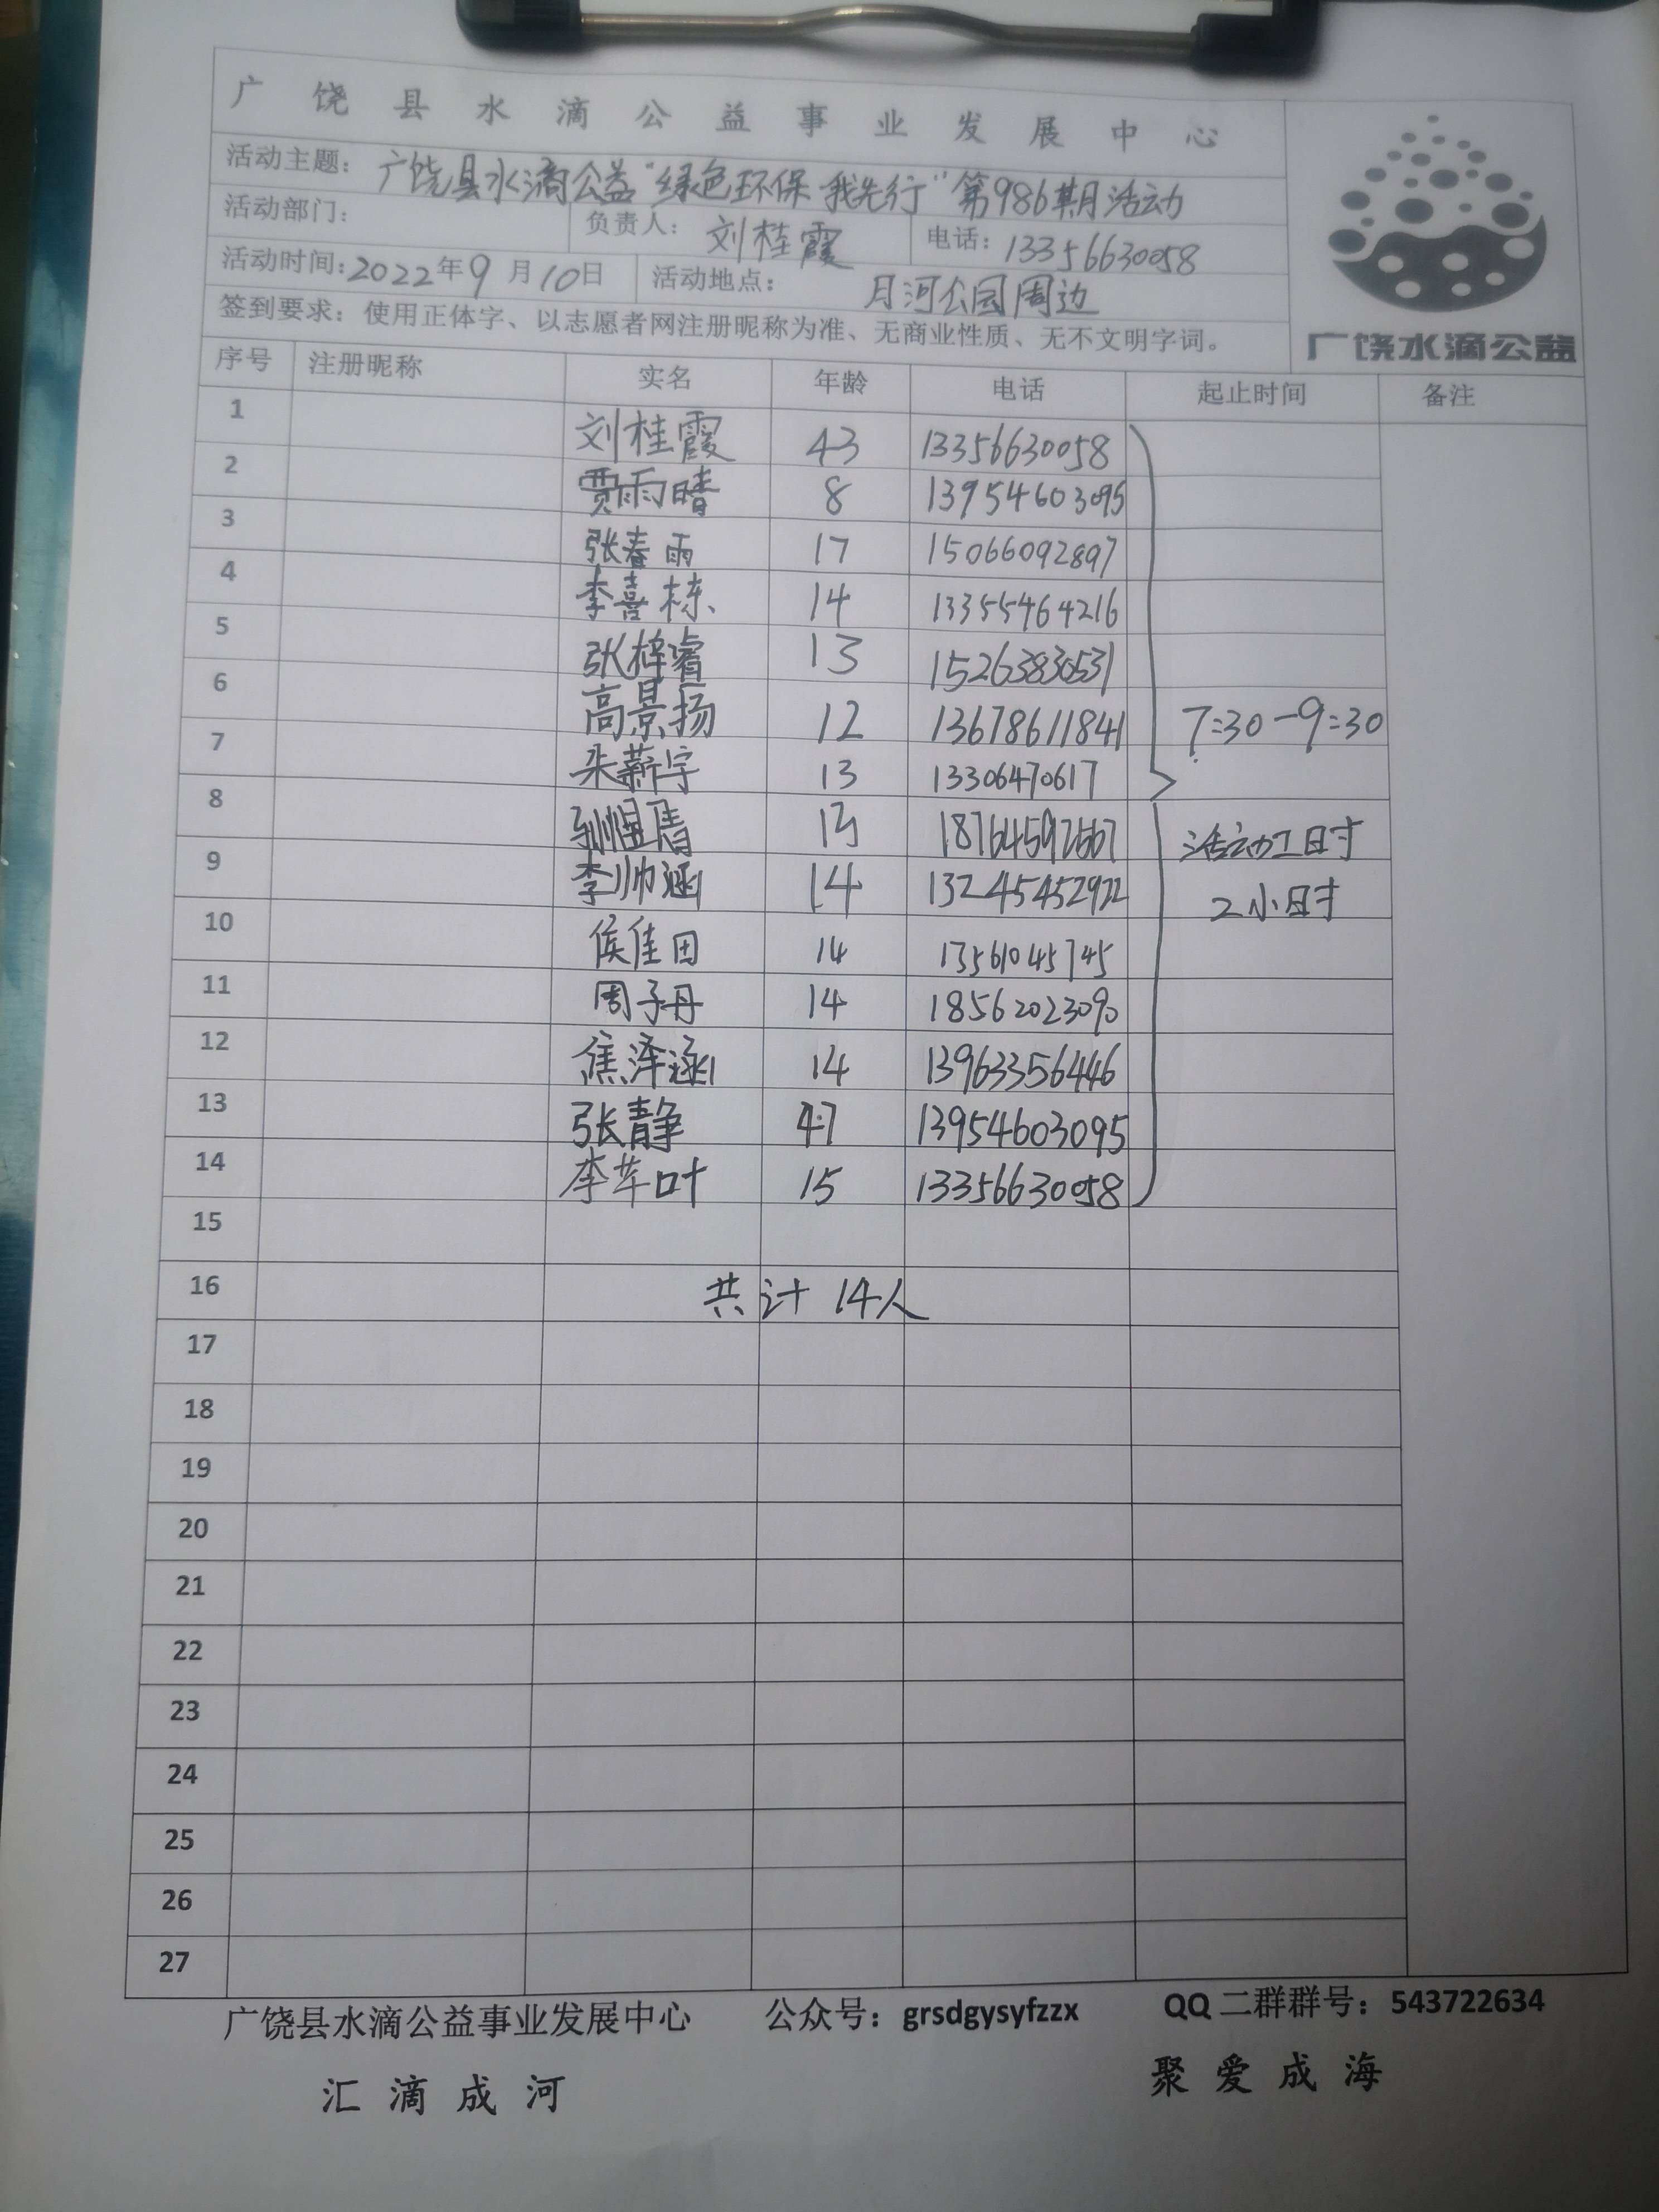 广饶县水滴公益事业发展中心
活动主题：广饶县水滴公益“绿色环保 我先行”第986期活动
活动部门： 负责人：刘桂霞 电话：13356630058
活动时间：2022年9月10日 活动地点：月河公园周边
签到要求：使用正体字、以志愿者网注册昵称为准、无商业性质、无不文明字词。
广饶水滴公益
序号 注册昵称 实名 年龄 电话 起止时间 备注
1 刘桂霞 43 13356630058
2 贾雨晴 8 13954603095
3 张春雨 17 15066092897
4 李喜栋 14 13355464216
5 张梓睿 13 15263830531
6 高景扬 12 13678611841 7:30-9:30
7 朱薪宇 13 13306470617
8 13 活动工时
9 李帅涵 14 13245452922 2小时
10 侯佳田 14 13561045745
11 周子丹 14 18562023090
12 焦泽涵 14 13963356446
13 张静 47 13954603095
14 李苹叶 15 13356630058
15
16 共计14人
17
18
19
20
21
22
23
24
25
26
27
广饶县水滴公益事业发展中心 公众号：grsdgysyfzzx QQ二群群号：543722634
汇滴成河 聚爱成海